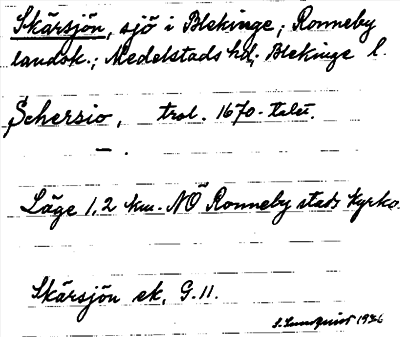 Skärsjön, sjö i Blekinge; Ronneby
landsk.; Medelstads hd; Blekinge l.
Schersio, trol. 1670-talet.
— .
Läge 1,2 km. NÖ Ronneby stads kyrka.
Skärsjön ek, G.11.
S. Lundquist 1936